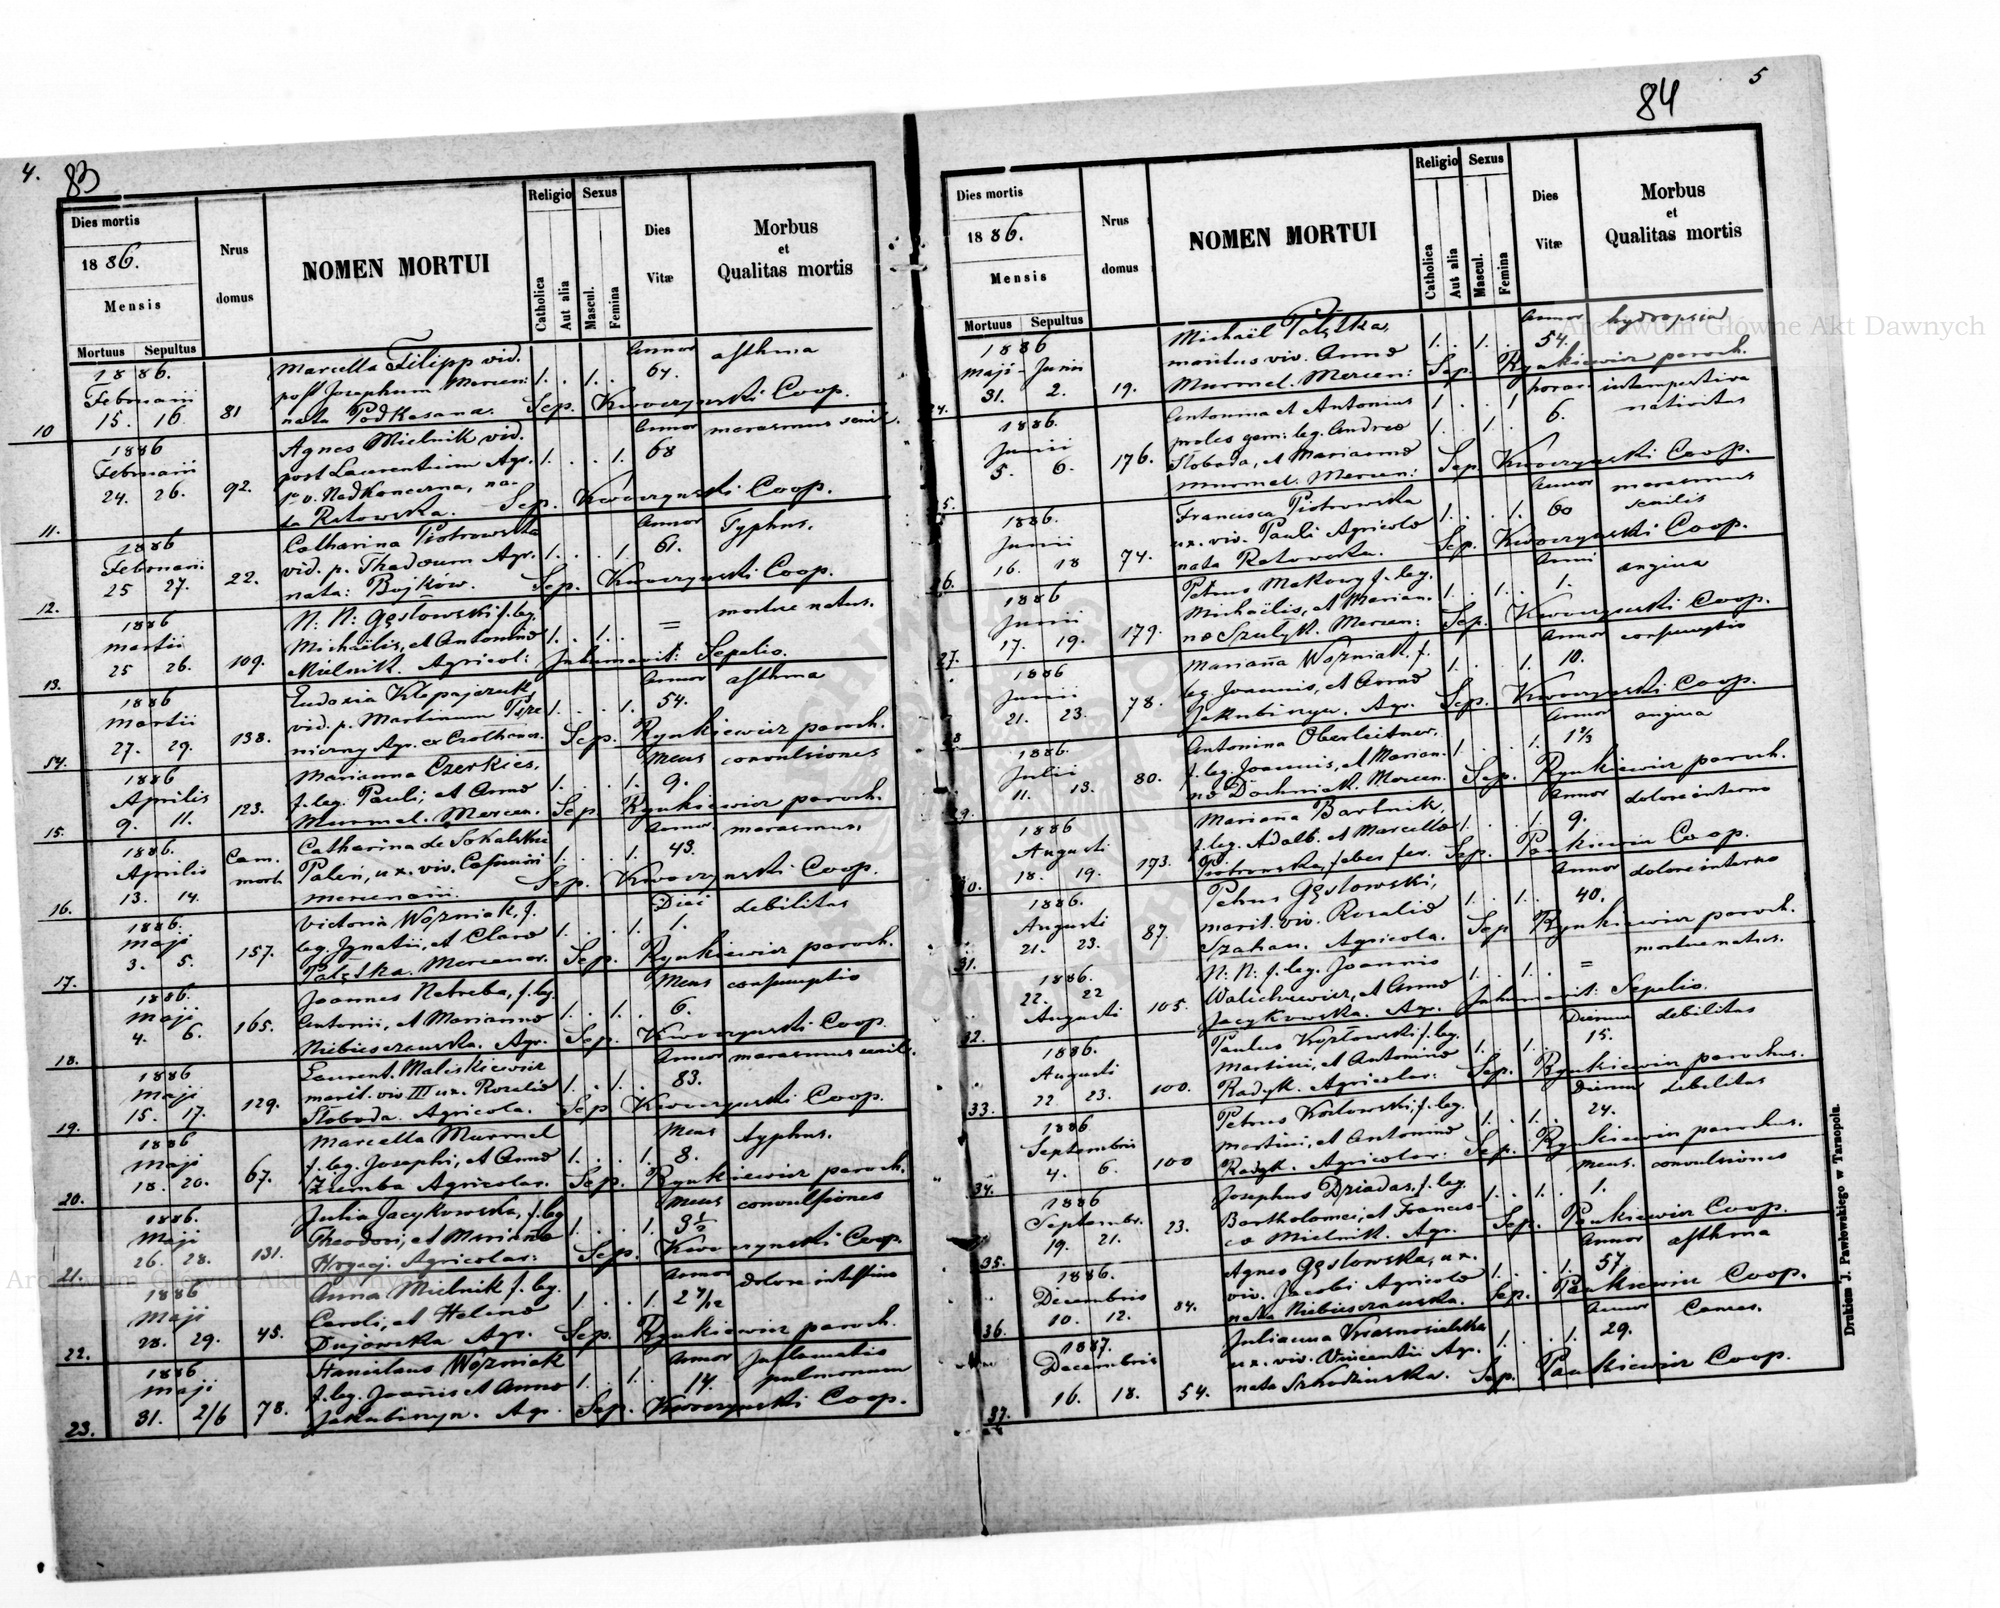 4.
83
Dies mortis
1886.
Mensis
Mortuus Sepultus
Nrus domus
NOMEN MORTUI
Religio
Catholica
Aut alia
Sexus
Mascul.
Femina
Dies Vitæ
Morbus
et
Qualitas mortis
1886. Marcella Filipp vid. Annor asthma
Februarii post Josephum Mercen: 1. . 1. . 64.
10 15. 16. 81 nata Podkasana. Sep. Kwoczynski Coop.
1886 Agnes Mielnik vid. Annor marasmus senil.
Februarii post Laurentium Agr. 1. . . 1. 68
24. 26. 92. 1º v. Nadkoneczna, na-
11. ta Rotowska. Sep. Kwoczynski Coop.
1886 Catharina Piotrowska Annor Typhus.
Februarii vid. p. Thadæum Agr. 1. . . 1. 61.
12. 25 27. 22. nata: Bujków. Sep. Kwoczynski Coop.
1886 N: N: Gęstowski f. leg. mortue natus.
Martii Michaëlis, et Antoninæ 1. . 1. . =
13. 25 26. 109. Mielnik. Agricol: Inhumavit: Sepelio.
1886 Eudoxia Annor asthma
Martii vid. p. Martinum 1. . . 1. 54.
54. 27. 29. 138. Agr. Sep. Rynkiewicz paroch.
1886 Marianna Czerkies, Mens convulsiones
Aprilis f. leg. Pauli, et Annæ 1. . . 1. 9.
15. 9. 11. 123. Murmel. Mercen. Sep Rynkiewicz paroch.
1886. Catharina de Sokalskie Annor marasmus.
Aprilis Cam. mort. Paleń, ux. viv. Casimiri 1. . . 1. 43.
16. 13. 14. mercenarii. Sep. Kwoczynski Coop.
1886. Victoria Woźniak, f. Diei debilitas
Maji leg. Ignatii, et Claræ 1. . . 1. 1.
17. 3. 5. 157. Patętka. Mercenar. Sep. Rynkiewicz paroch.
1886. Joannes Netreba, f. leg. Mens consumptio
Maji Antonii, et Mariannæ 1. . 1. . 6.
18. 4. 6. 165. Niebieszczanska. Agr. Sep. Kwoczynski Coop.
1886 Laurent. Maliskiewicz Annor marasmus senil.
Maji marit. viv. III ux. Rosaliæ 1. . 1. . 83.
19. 15. 17. 129. Sloboda. Agricola. Sep Kwoczynski Coop.
1886 Marcella Murmel Mens typhus.
Maji f. leg. Josephi, et Annæ 1. . . 1. 8.
20. 18. 20. 67. Ziemba Agricolar. Sep. Rynkiewicz paroch.
1886. Julia Jacykowska, f. leg Mens convulsiones
Maji Theodori, et Mariannæ 1. . . 1. 3½
21. 26. 28. 131. Agricolar: Sep. Kwoczynski Coop.
1886 Anna Mielnik f. leg. Annor dolore intestino
Maji Caroli, et Helenæ 1. . . 1. 2 7/12
22. 28. 29. 45. Dujowska Agr. Sep. Rynkiewicz paroch.
1886 Stanislaus Woźniak Annor Inflamatio
Maji f. leg. Joannis et Annæ 1. . 1. . 14. pulmonum
23. 31. 2/6 78. Jakubinyn. Agr. Sep. Kwoczynski Coop.
84
5
Dies mortis
1886.
Mensis
Mortuus Sepultus
Nrus domus
NOMEN MORTUI
Religio
Catholica
Aut alia
Sexus
Mascul.
Femina
Dies Vitæ
Morbus
et
Qualitas mortis
1886 Michaël Patętka, Annor hydropsia
Maji - Junii maritus viv. Annæ 1. . 1. . 54.
24. 31. 2. 19. Murmel. Mercen: Sep. Rynkiewicz paroch.
1886. Antonina et Antonius 1 . . 1 horar. intempestiva
Junii proles gem: leg. Andreæ 1. . 1. . 6. nativitas
5. 6. 176. Sloboda, et Mariannæ
25. Murmel. Mercen: Sep Kwoczynski Coop.
1886. Francisca Piotrowska Annor marasmus
Junii ux. viv. Pauli Agricolæ 1. . . 1. 60 senilis
26. 16. 18 74. nata Rotowska. Sep. Kwoczynski Coop.
1886 Petrus Makowy f. leg. Anni angina
Junii Michaëlis, et Marian- 1. . 1. . 1.
27. 17. 19. 179. næ Szulyk. Mercen: Sep. Kwoczynski Coop.
1886 Marianna Woźniak, f. Annor consumptio
Junii leg. Joannis, et Annæ 1. . . 1. 10.
28 21. 23. 78. Jakubinyn. Agr. Sep. Kwoczynski Coop.
1886. Antonina Oberleitner, Annor angina
Julii f. leg. Joannis, et Marian- 1. . . 1. 1⅔
29. 11. 13. 80. næ Dochniak. Mercen. Sep. Rynkiewicz paroch.
1886 Marianna Bartnik, Annor dolore interno
Augusti f. leg. Adalb. et Marcellæ 1. . . 1. 9.
30. 18. 19. 173. Piotrowska, faber fer. Sep. Pankiewicz Coop.
1886. Petrus Gęstowski, Annor dolore interno
Augusti marit. viv. Rosaliæ 1. . 1. . 40.
31. 21. 23. 87. Szahan. Agricola. Sep Rynkiewicz paroch.
1886. N: N: f. leg. Joannis mortue natus.
22. 22 Walichiewicz, et Annæ 1. . 1. . =
32. Augusti 105. Jacykowska. Agr. Inhumavit: Sepelio.
1886. Paulus Kozłowski, f. leg. Dierum debilitas
Augusti Martini, et Antoninæ 1. . 1. . 15.
33. 22. 23. 100. Radyk. Agricolar: Sep. Rynkiewicz parochus.
1886 Petrus Kozłowski, f. leg. Dierum debilitas
Septembris Martini, et Antoninæ 1. . 1. . 24.
34. 4. 6. 100 Radyk. Agricolar: Sep. Rynkiewicz parochus.
1886 Josephus Dziadas, f. leg. Mens. convulsiones
Septembr. Bartholomei, et Francis- 1. . 1. . 1.
35. 19. 21. 23. cæ Mielnik. Agr. Sep. Pankiewicz Coop.
1886. Agnes Gęstowska, ux. Annor asthma
Decembris viv. Jacobi Agricolæ 1. . . 1. 57.
36. 10. 12. 84. nata Niebieszczanska. Sep. Pankiewicz Coop.
1887. Julianna Krasnosielska Annor Cancer.
Decembris ux. viv. Vincentii Agr. 1. . . 1. 29.
37. 16. 18. 54. nata Szkodzinska. Sep. Pankiewicz Coop.
Drukiem J. Pawłowskiego w Tarnopolu.
Archiwum Główne Akt Dawnych
Archiwum Główne Akt Dawnych